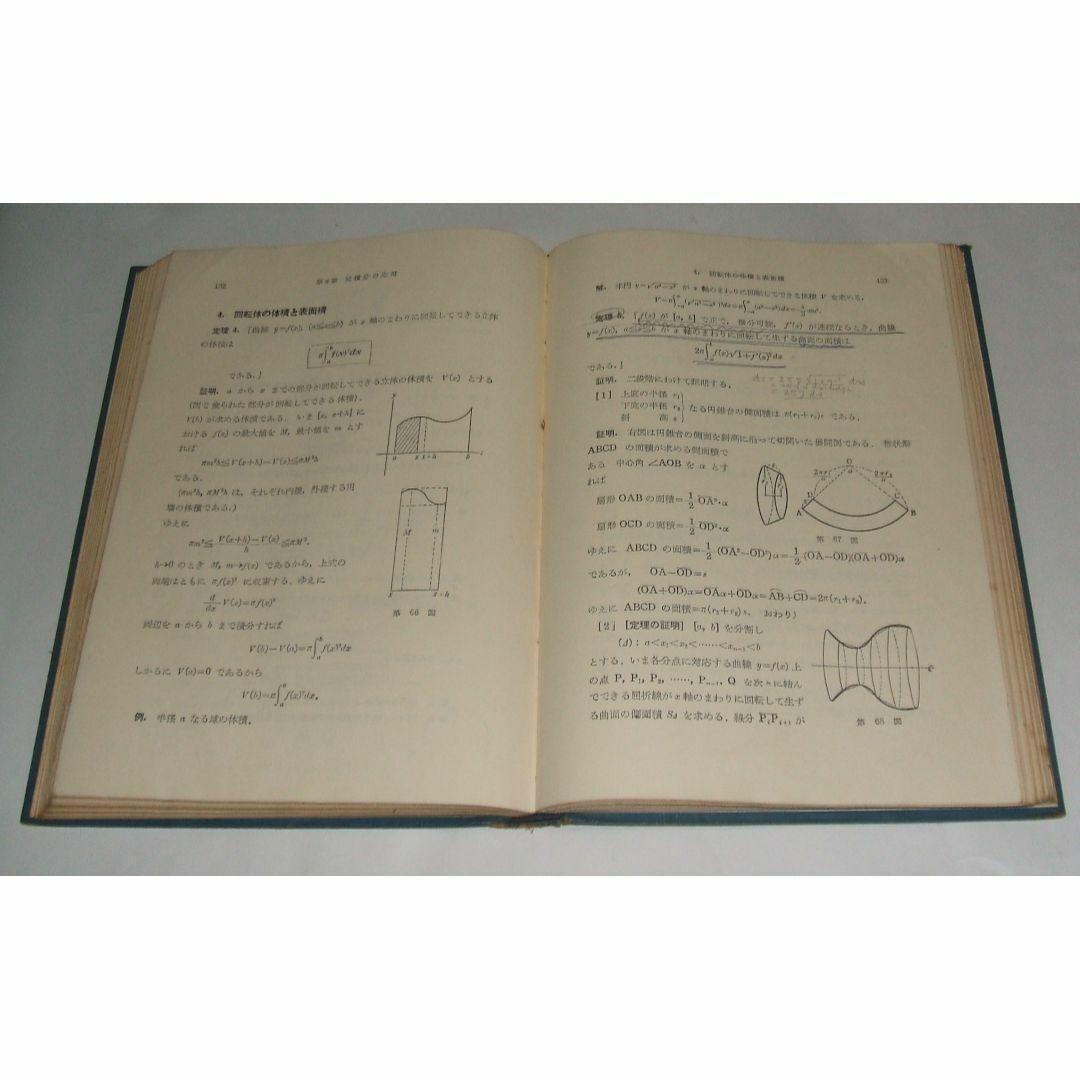 132
第8章 定積分の応用
4. 回転体の体積と表面積
定理 4. [曲線 y=f(x), (a≦x≦b) が x 軸のまわりに回転してできる立体
の体積は
π∫_a^b f(x)²dx
である.]
証明. a から x までの部分が回転してできる立体の体積を V(x) とする
(図で塗られた部分が回転してできる体積).
V(b) が求める体積である. いま [x, x+h] に
おける f(x) の最大値を M, 最小値を m とす
れば
πm²h≦V(x+h)−V(x)≦πM²h
である.
(πm²h, πM²h は, それぞれ内接, 外接する円
壔の体積である.)
ゆえに
πm²≦ (V(x+h)−V(x))/h ≦πM².
h→0 のとき M, m→f(x) であるから, 上式の
両端はともに πf(x)² に収束する. ゆえに
d/dx V(x)=πf(x)²
両辺を a から b まで積分すれば
V(b)−V(a)=π∫_a^b f(x)²dx
しかるに V(a)=0 であるから
V(b)=π∫_a^b f(x)²dx.
例. 半径 a なる球の体積.
y
a x x+h b x
M m
x x+h
第 66 図
4. 回転体の体積と表面積
133
解. 半円 y=√a²−x² が x 軸のまわりに回転してできる体積 V を求める.
定理 5. [f(x) が [a, b] で正で, 積分可能, f′(x) が連続なるとき, 曲線
y=f(x), a≦x≦b が x 軸のまわりに回転して生ずる曲面の面積は
2π∫_a^b f(x)√1+f′(x)² dx
である.]
証明. 二段階にわけて証明する.
[1] 上底の半径 r₁
下底の半径 r₂ なる円錐台の側面積は π(r₁+r₂)s である.
斜 高 s
証明. 右図は円錐台の側面を斜高に沿って切開いた展開図である. 帯状形
ABCD の面積が求める側面積で
ある 中心角 ∠AOB を α とす
れば
扇形 OAB の面積=1/2 OA²·α
扇形 OCD の面積=1/2 OD²·α
O
D C
A B
第 67 図
ゆえに ABCD の面積=1/2 (OA²−OD²)α=1/2 (OA−OD)(OA+OD)α
であるが, OA−OD=s
(OA+OD)α=OAα+ODα=AB+CD=2π(r₁+r₂).
ゆえに ABCD の面積=π(r₁+r₂)s. おわり)
[2] [定理の証明] [a, b] を分割し
(Δ): a<x₁<x₂<……<xₙ₋₁<b
とする. いま各分点に対応する曲線 y=f(x) 上
の点 P, P₁, P₂, ……, Pₙ₋₁, Q を次々に結ん
でできる屈折線が x 軸のまわりに回転して生ず
る曲面の側面積 SΔ を求める. 線分 PᵢPᵢ₊₁ が
x
第 68 図